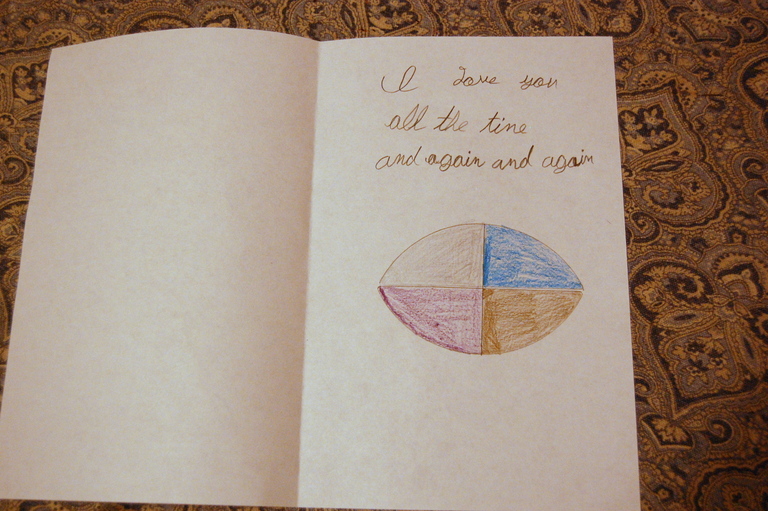 I love you
all the tine
and again and again